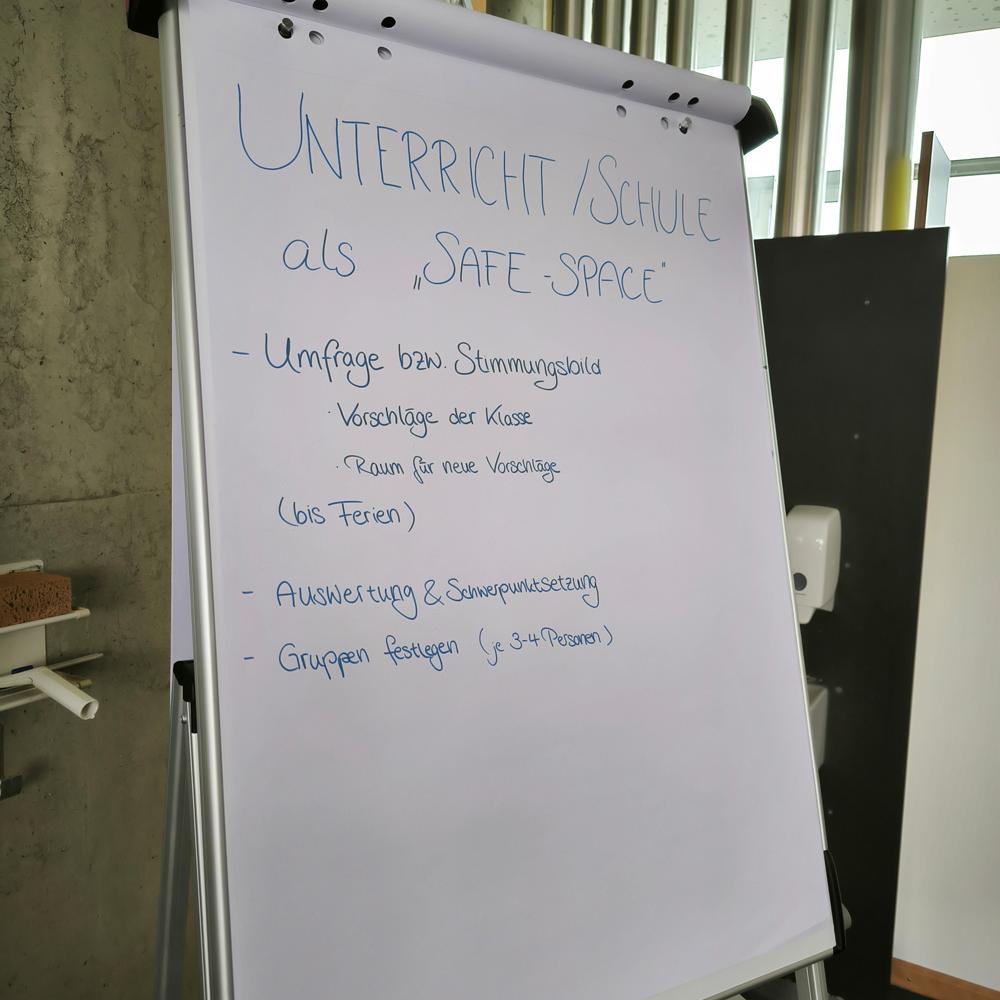 UNTERRICHT / SCHULE
als „SAFE-SPACE"
- Umfrage bzw. Stimmungsbild
· Vorschläge der Klasse
· Raum für neue Vorschläge
(bis Ferien)
- Auswertung & Schwerpunktsetzung
- Gruppen festlegen (je 3-4 Personen)